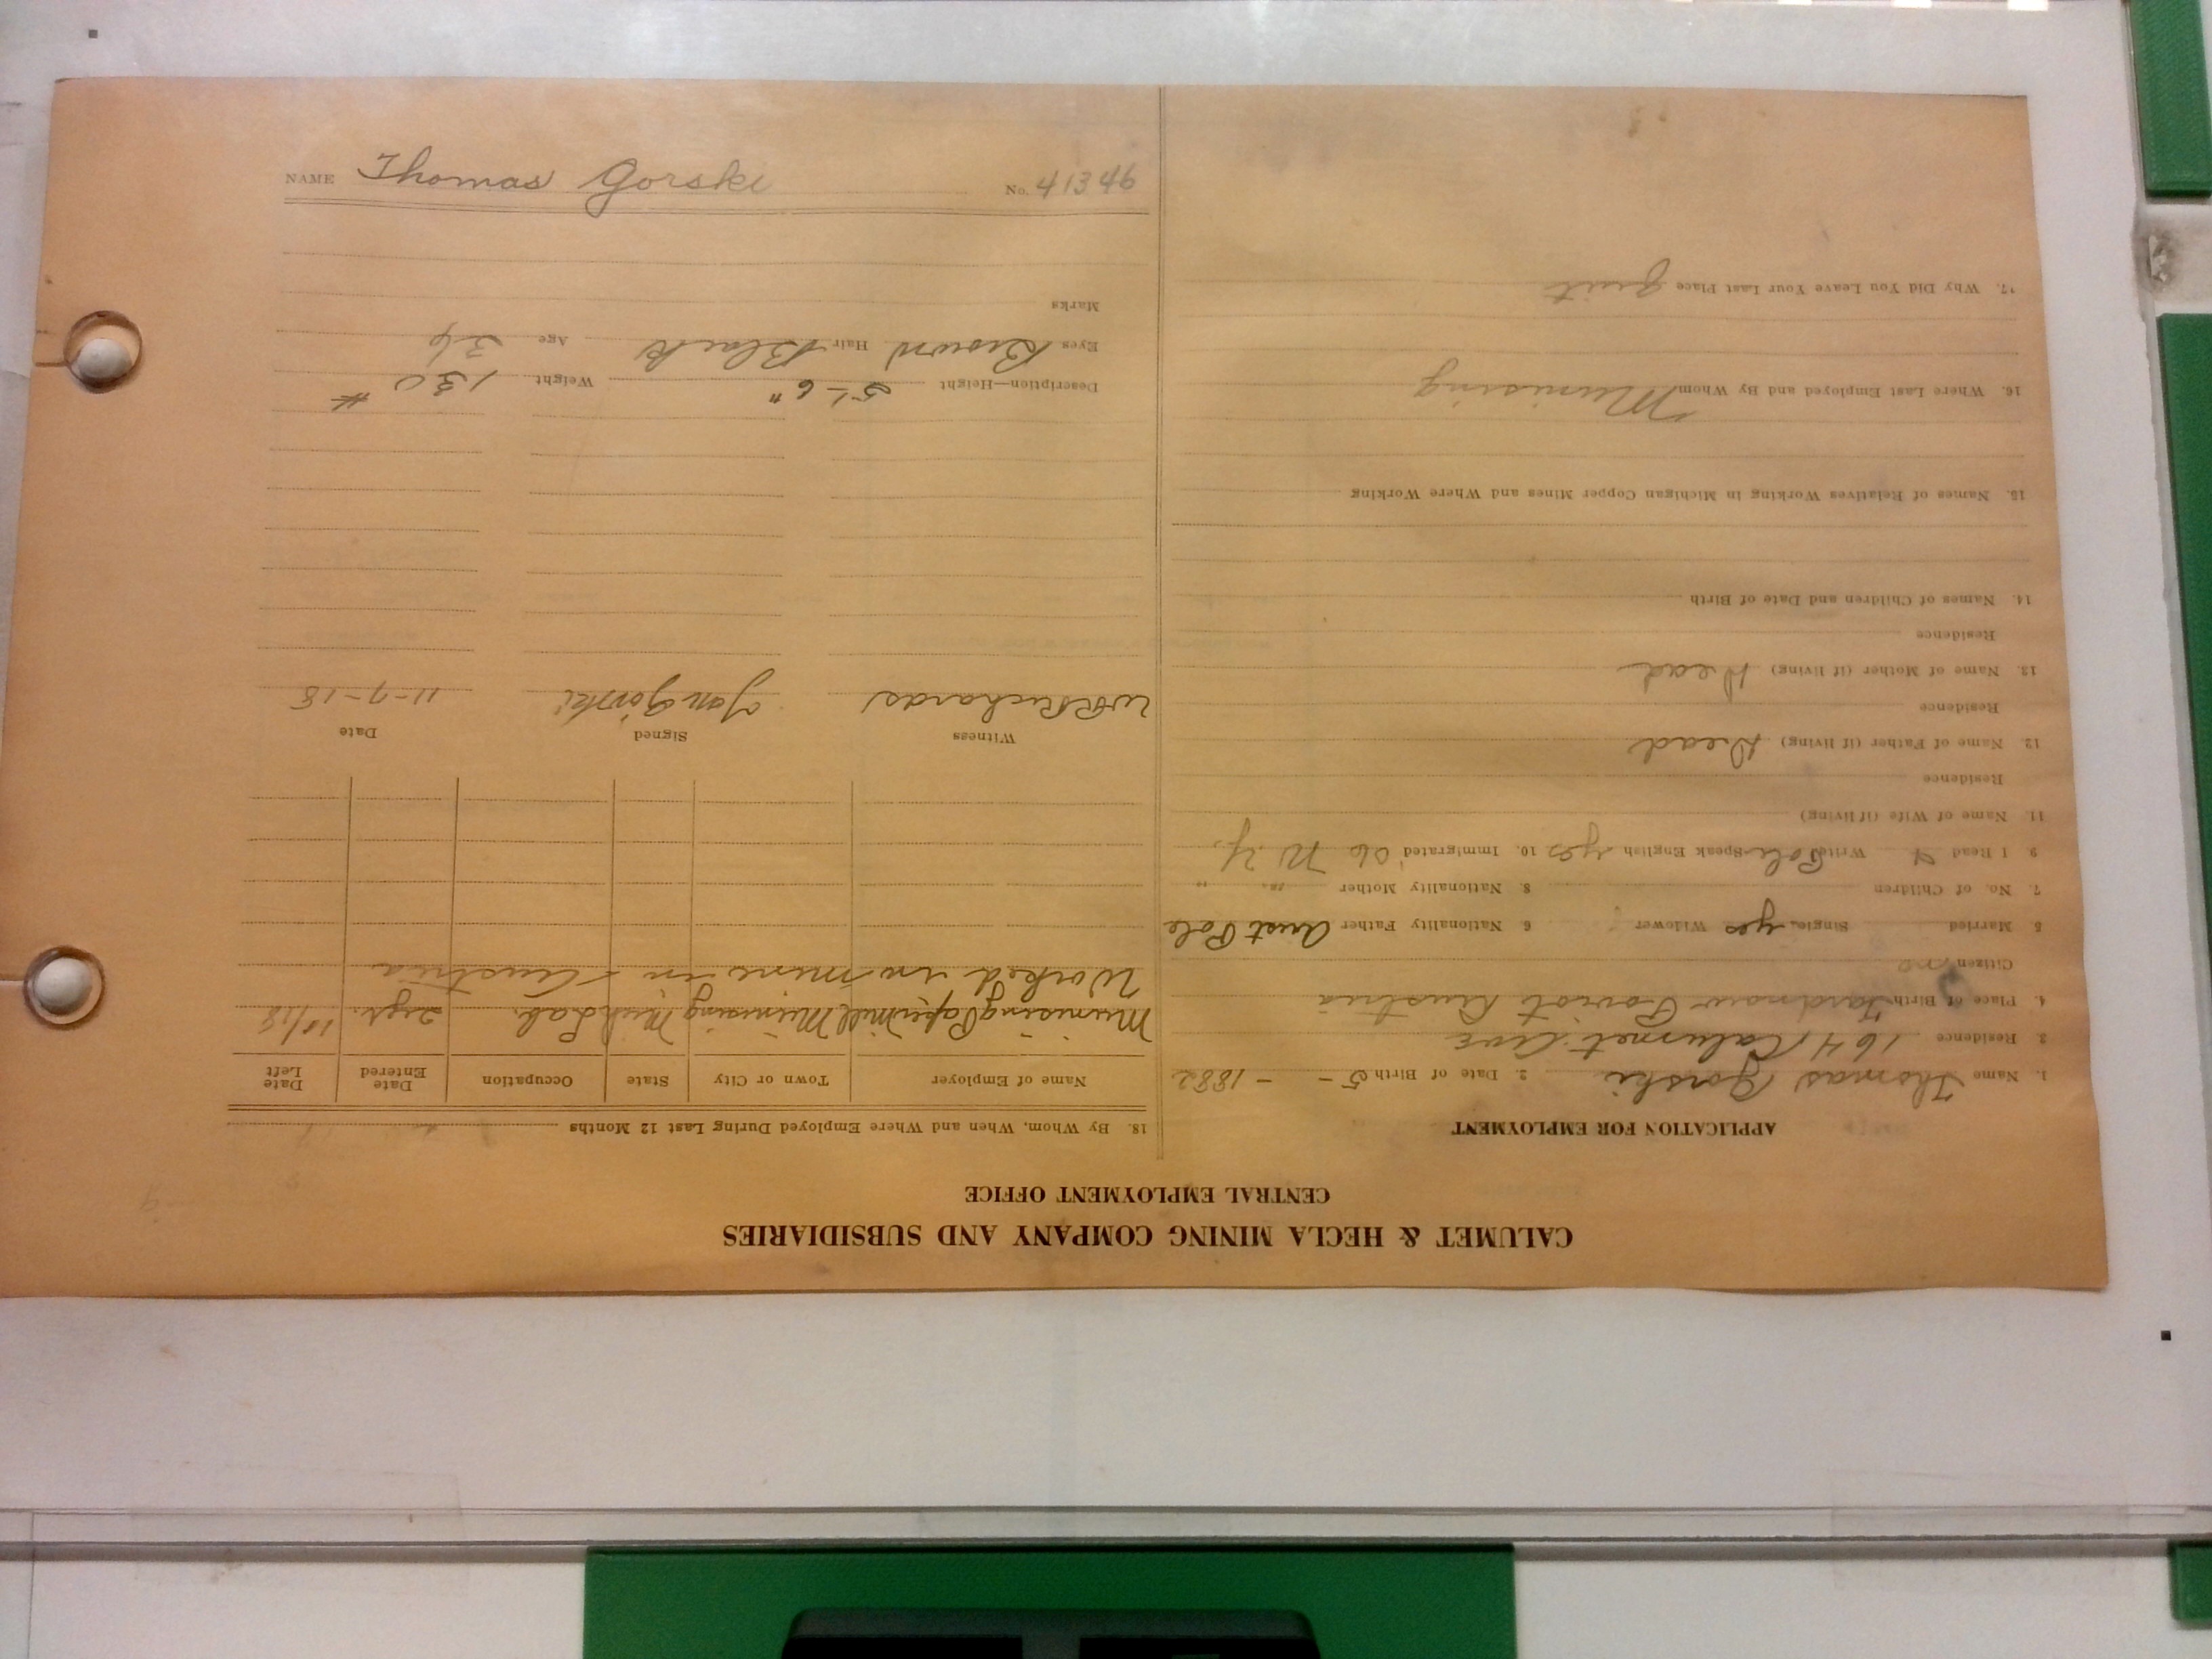 CALUMET & HECLA MINING COMPANY AND SUBSIDIARIES
CENTRAL EMPLOYMENT OFFICE
APPLICATION FOR EMPLOYMENT
1. Name Thomas Gorski 2. Date of Birth 5 - - 1882
3. Residence 164 Calumet Ave
4. Place of Birth Austria
Citizen no
5 Married Single yes Widower 6 Nationality Father Aust Pole
7. No. of Children 8. Nationality Mother " "
9 I Read & Write Pole Speak English yes 10. Immigrated '06 N.Y.
11. Name of Wife (if living)
Residence
12. Name of Father (if living) Dead
Residence
13. Name of Mother (if living) Dead
Residence
14. Names of Children and Date of Birth
15. Names of Relatives Working in Michigan Copper Mines and Where Working
16. Where Last Employed and By Whom Munising
17. Why Did You Leave Your Last Place quit
18. By Whom, When and Where Employed During Last 12 Months
Name of Employer Town or City State Occupation Date Entered Date Left
Munising Paper Mill Munising Mich Lab. 2 yr.
Worked in mine in Austria
Witness Signed Date
W R Richards Jan Górski 11-7-18
Description—Height 5'-6" Weight 130 #
Eyes Brown Hair Black Age 36
Marks
NAME Thomas Gorski No. 41346